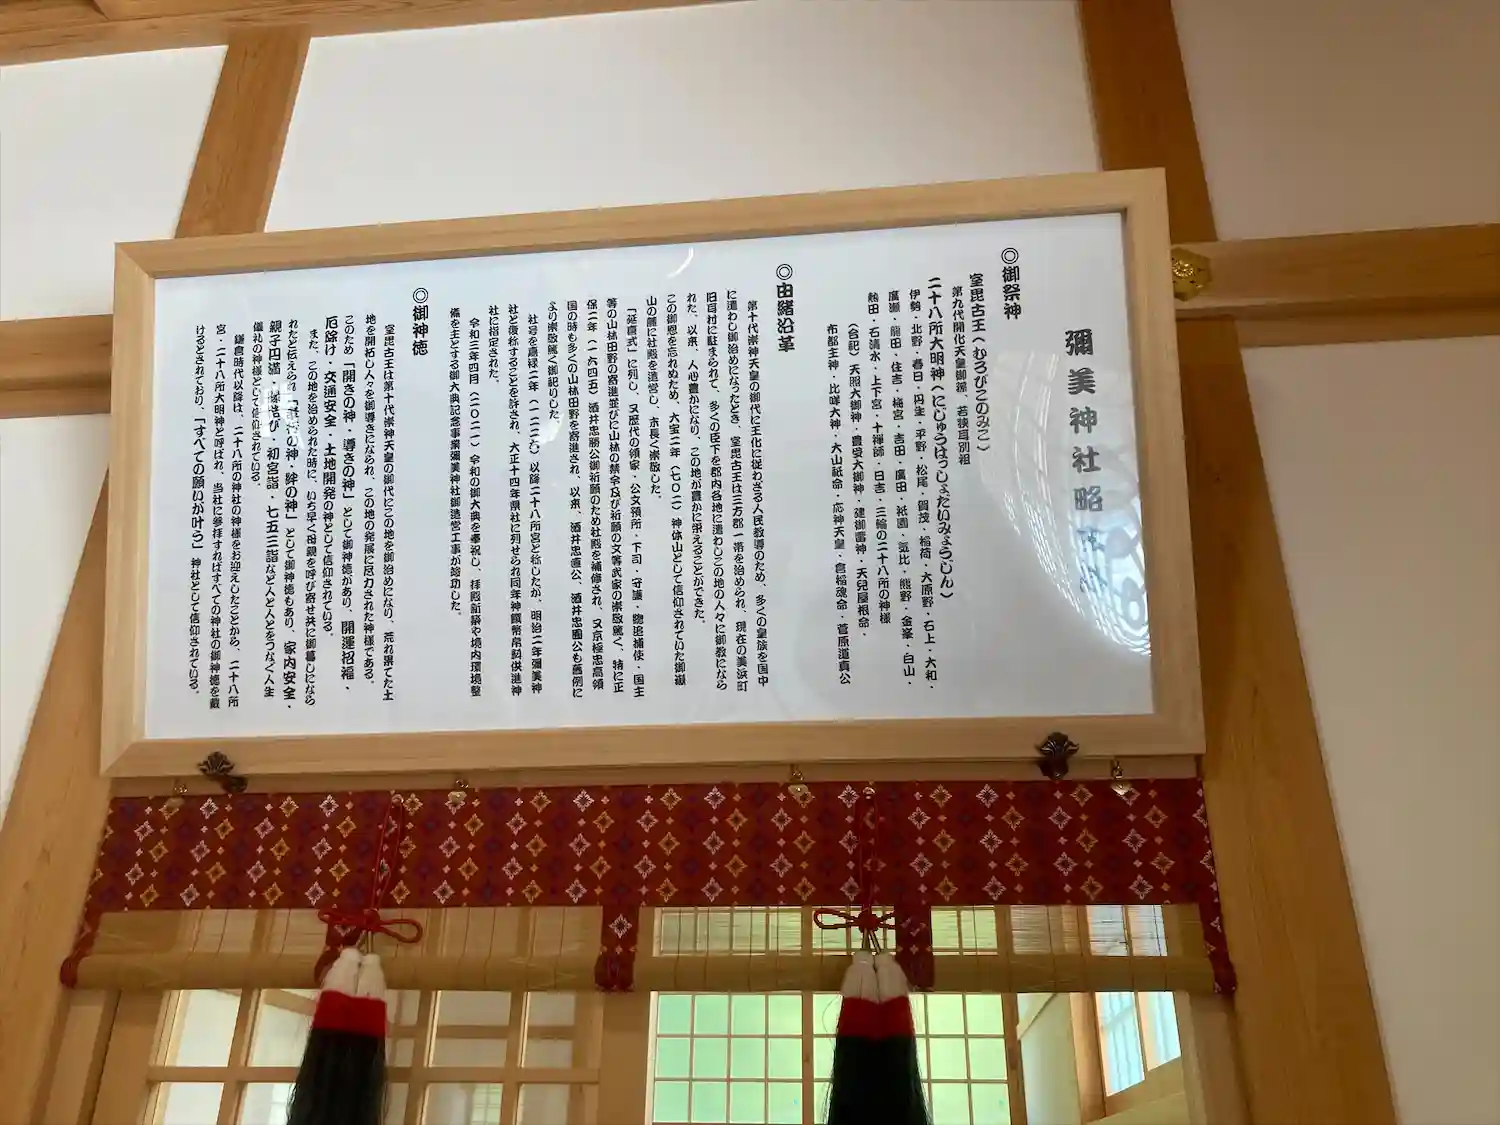 彌美神社略記
◎御祭神
室毘古王（むろびこのみこ）
第九代開化天皇御孫、若狭耳別祖
二十八所大明神（にじゅうはっしょだいみょうじん）
伊勢・北野・春日・丹生・平野・松尾・賀茂・稲荷・大原野・石上・大和・
廣瀬・龍田・住吉・梅宮・吉田・廣田・祇園・気比・熊野・金峯・白山・
熱田・石清水・上下宮・十禅師・日吉・三輪の二十八所の神様
（合記）天照大御神・豊受大御神・建御雷神・天兒屋根命・
布都主神・比咩大神・大山祇命・応神天皇・倉稲魂命・菅原道真公
◎由緒沿革
第十代崇神天皇の御代に王化に従わざる人民教導のため、多くの皇族を国中
に遣わし御治めになったとき、室毘古王は三方郡一帯を治められ、現在の美浜町
旧耳村に駐まられて、多くの臣下を郡内各地に遣わしこの地の人々に御教になら
れた、以来、人心豊かになり、この地が豊かに栄えることができた。
この御恩を忘れぬため、大宝二年（七〇二）神体山として信仰されていた御嶽
山の麓に社殿を造営し、永長く崇敬した。
「延喜式」に列し、又歴代の領家・公文預所・下司・守護・惣追捕使・国主
等の山林田野の寄進並びに山林の禁令及び祈願の文等武家の崇敬篤く、特に正
保二年（一六四五）酒井忠勝公御祈願のため社殿を補修され、又京極忠高領
国の時も多くの山林田野を寄進され、以来、酒井忠直公、酒井忠囿公も舊例に
より崇敬篤く御祀りした。
社号を嘉禄二年（一二二六）以降二十八所宮と称したが、明治二年彌美神
社と復称することを許され、大正十四年県社に列せられ同年神饌幣帛料供進神
社に指定された。
令和三年四月（二〇二一）令和の御大典を奉祝し、拝殿新築や境内環境整
備を主とする御大典記念事業彌美神社御造営工事が竣功した。
◎御神徳
室毘古王は第十代崇神天皇の御代にこの地を御治めになり、荒れ果てた土
地を開拓し人々を御導きになられ、この地の発展に尽力された神様である。
このため「開きの神・導きの神」として御神徳があり、開運招福・
厄除け・交通安全・土地開発の神として信仰されている。
また、この地を治められた時に、いち早く母親を呼び寄せ共に御暮しになら
れたと伝えられ「の神・絆の神」として御神徳もあり、家内安全・
親子円満・結び・初宮詣・七五三詣など人と人とをつなぐ人生
儀礼の神様として信仰されている。
鎌倉時代以降は、二十八所の神社の神様をお迎えしたことから、二十八所
宮・二十八所大明神と呼ばれ、当社に参拝すればすべての神社の御神徳を戴
けるとされており、「すべての願いが叶う」神社として信仰されている。